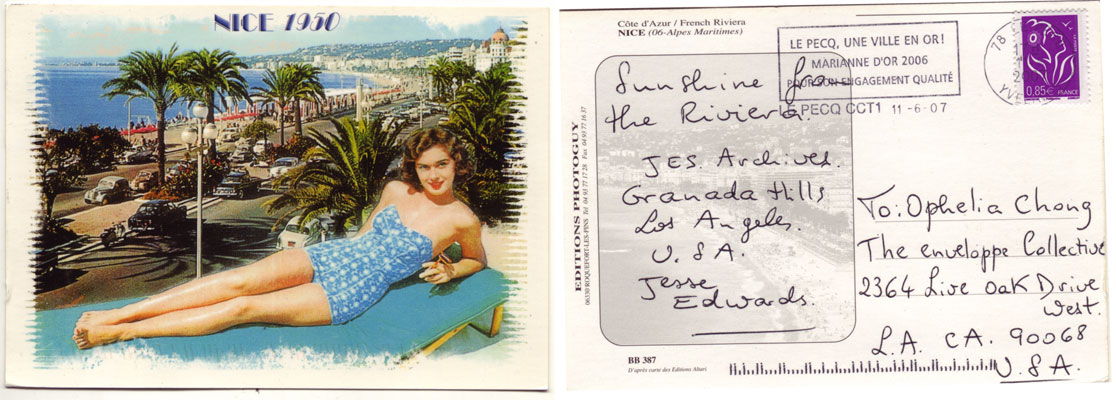 NICE 1950
Côte d'Azur / French Riviera
NICE (06-Alpes Maritimes)
LE PECQ, UNE VILLE EN OR!
MARIANNE D'OR 2006
POUR SON ENGAGEMENT QUALITÉ
LE PECQ CCT1 11-6-07
78
YV
0,85€ FRANCE
Sunshine from
the Riviera.
JES. Archives.
Granada Hills
Los Angeles.
U.S.A.
Jesse
Edwards.
EDITIONS PHOTOGUY
06330 ROQUEFORT-LES-PINS Tél 04 93 77 17 28 Fax 04 93 77 16 37
To: Ophelia Chong
The enveloppe Collective
2364 Live Oak Drive
west.
L.A. CA. 90068
U.S.A.
BB 387
D'après carte des Editions Altari